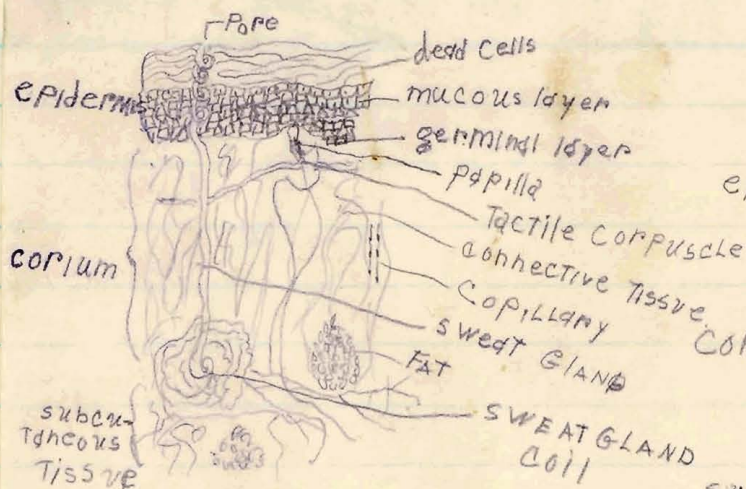 Pore
dead cells
epidermis
mucous layer
germinal layer
papilla
Tactile Corpuscle
connective Tissue
corium
Capillary
Sweat GLAND
FAT
SWEAT GLAND
Coil
subcu-
Taneous
Tissue